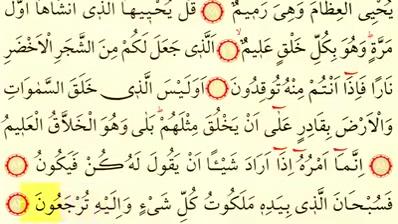 يُّحۡيِ الۡعِظَامَ وَهِىَ رَمِيۡمٌ ۝ قُلۡ يُحۡيِيۡهَا الَّذِىۡۤ اَنۡشَاَهَاۤ اَوَّلَ
مَرَّةٍ‌ ؕ وَهُوَ بِكُلِّ خَلۡقٍ عَلِيۡمٌ ۙ‏ ۝ اۨلَّذِىۡ جَعَلَ لَكُمۡ مِّنَ الشَّجَرِ الۡاَخۡضَرِ
نَارًا فَاِذَاۤ اَنۡتُمۡ مِّنۡهُ تُوۡقِدُوۡنَ‏ ۝ اَوَلَيۡسَ الَّذِىۡ خَلَقَ السَّمٰوٰتِ
وَالۡاَرۡضَ بِقٰدِرٍ عَلٰٓى اَنۡ يَّخۡلُقَ مِثۡلَهُمۡؕ بَلٰى وَهُوَ الۡخَلّٰقُ الۡعَلِيۡمُ
۝ اِنَّمَاۤ اَمۡرُهٗۤ اِذَاۤ اَرَادَ شَيۡـًٔـا اَنۡ يَّقُوۡلَ لَهٗ كُنۡ فَيَكُوۡنُ‏ ۝
فَسُبۡحٰنَ الَّذِىۡ بِيَدِهٖ مَلَكُوۡتُ كُلِّ شَىۡءٍ وَّاِلَيۡهِ تُرۡجَعُوۡنَ ۝